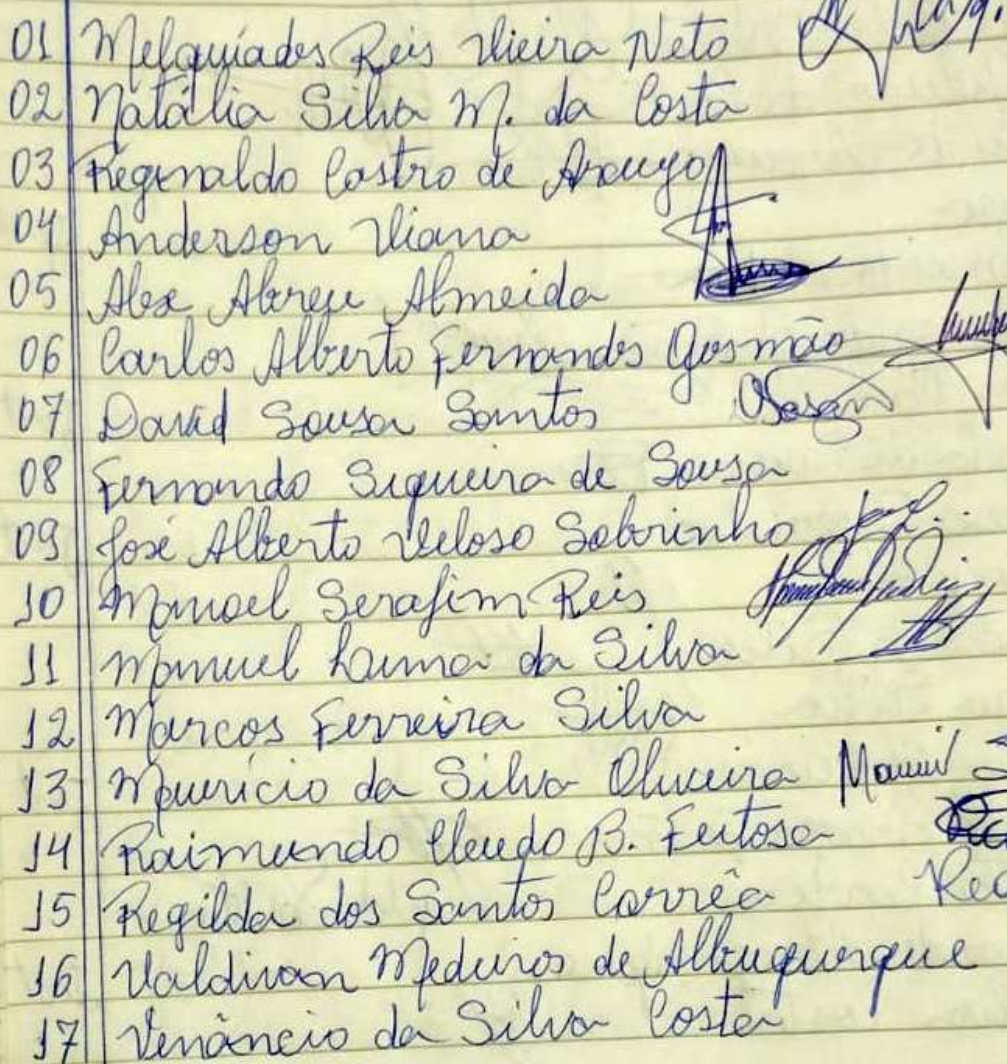 01 Melquíades Reis Vieira Neto
02 Natália Silva M. da Costa
03 Reginaldo Castro de Araujo
04 Anderson Viana
05 Alex Abreu Almeida
06 Carlos Alberto Fernandes Gusmão
07 David Sousa Santos
08 Fernando Siqueira de Sousa
09 José Alberto Veloso Sobrinho
10 Manoel Serafim Reis
11 Manuel Lima da Silva
12 Marcos Ferreira Silva
13 Maurício da Silva Oliveira
14 Raimundo B. Feitosa
15 Regilda dos Santos Corrêa
16 Valdivan Medeiros de Albuquerque
17 Venâncio da Silva Costa